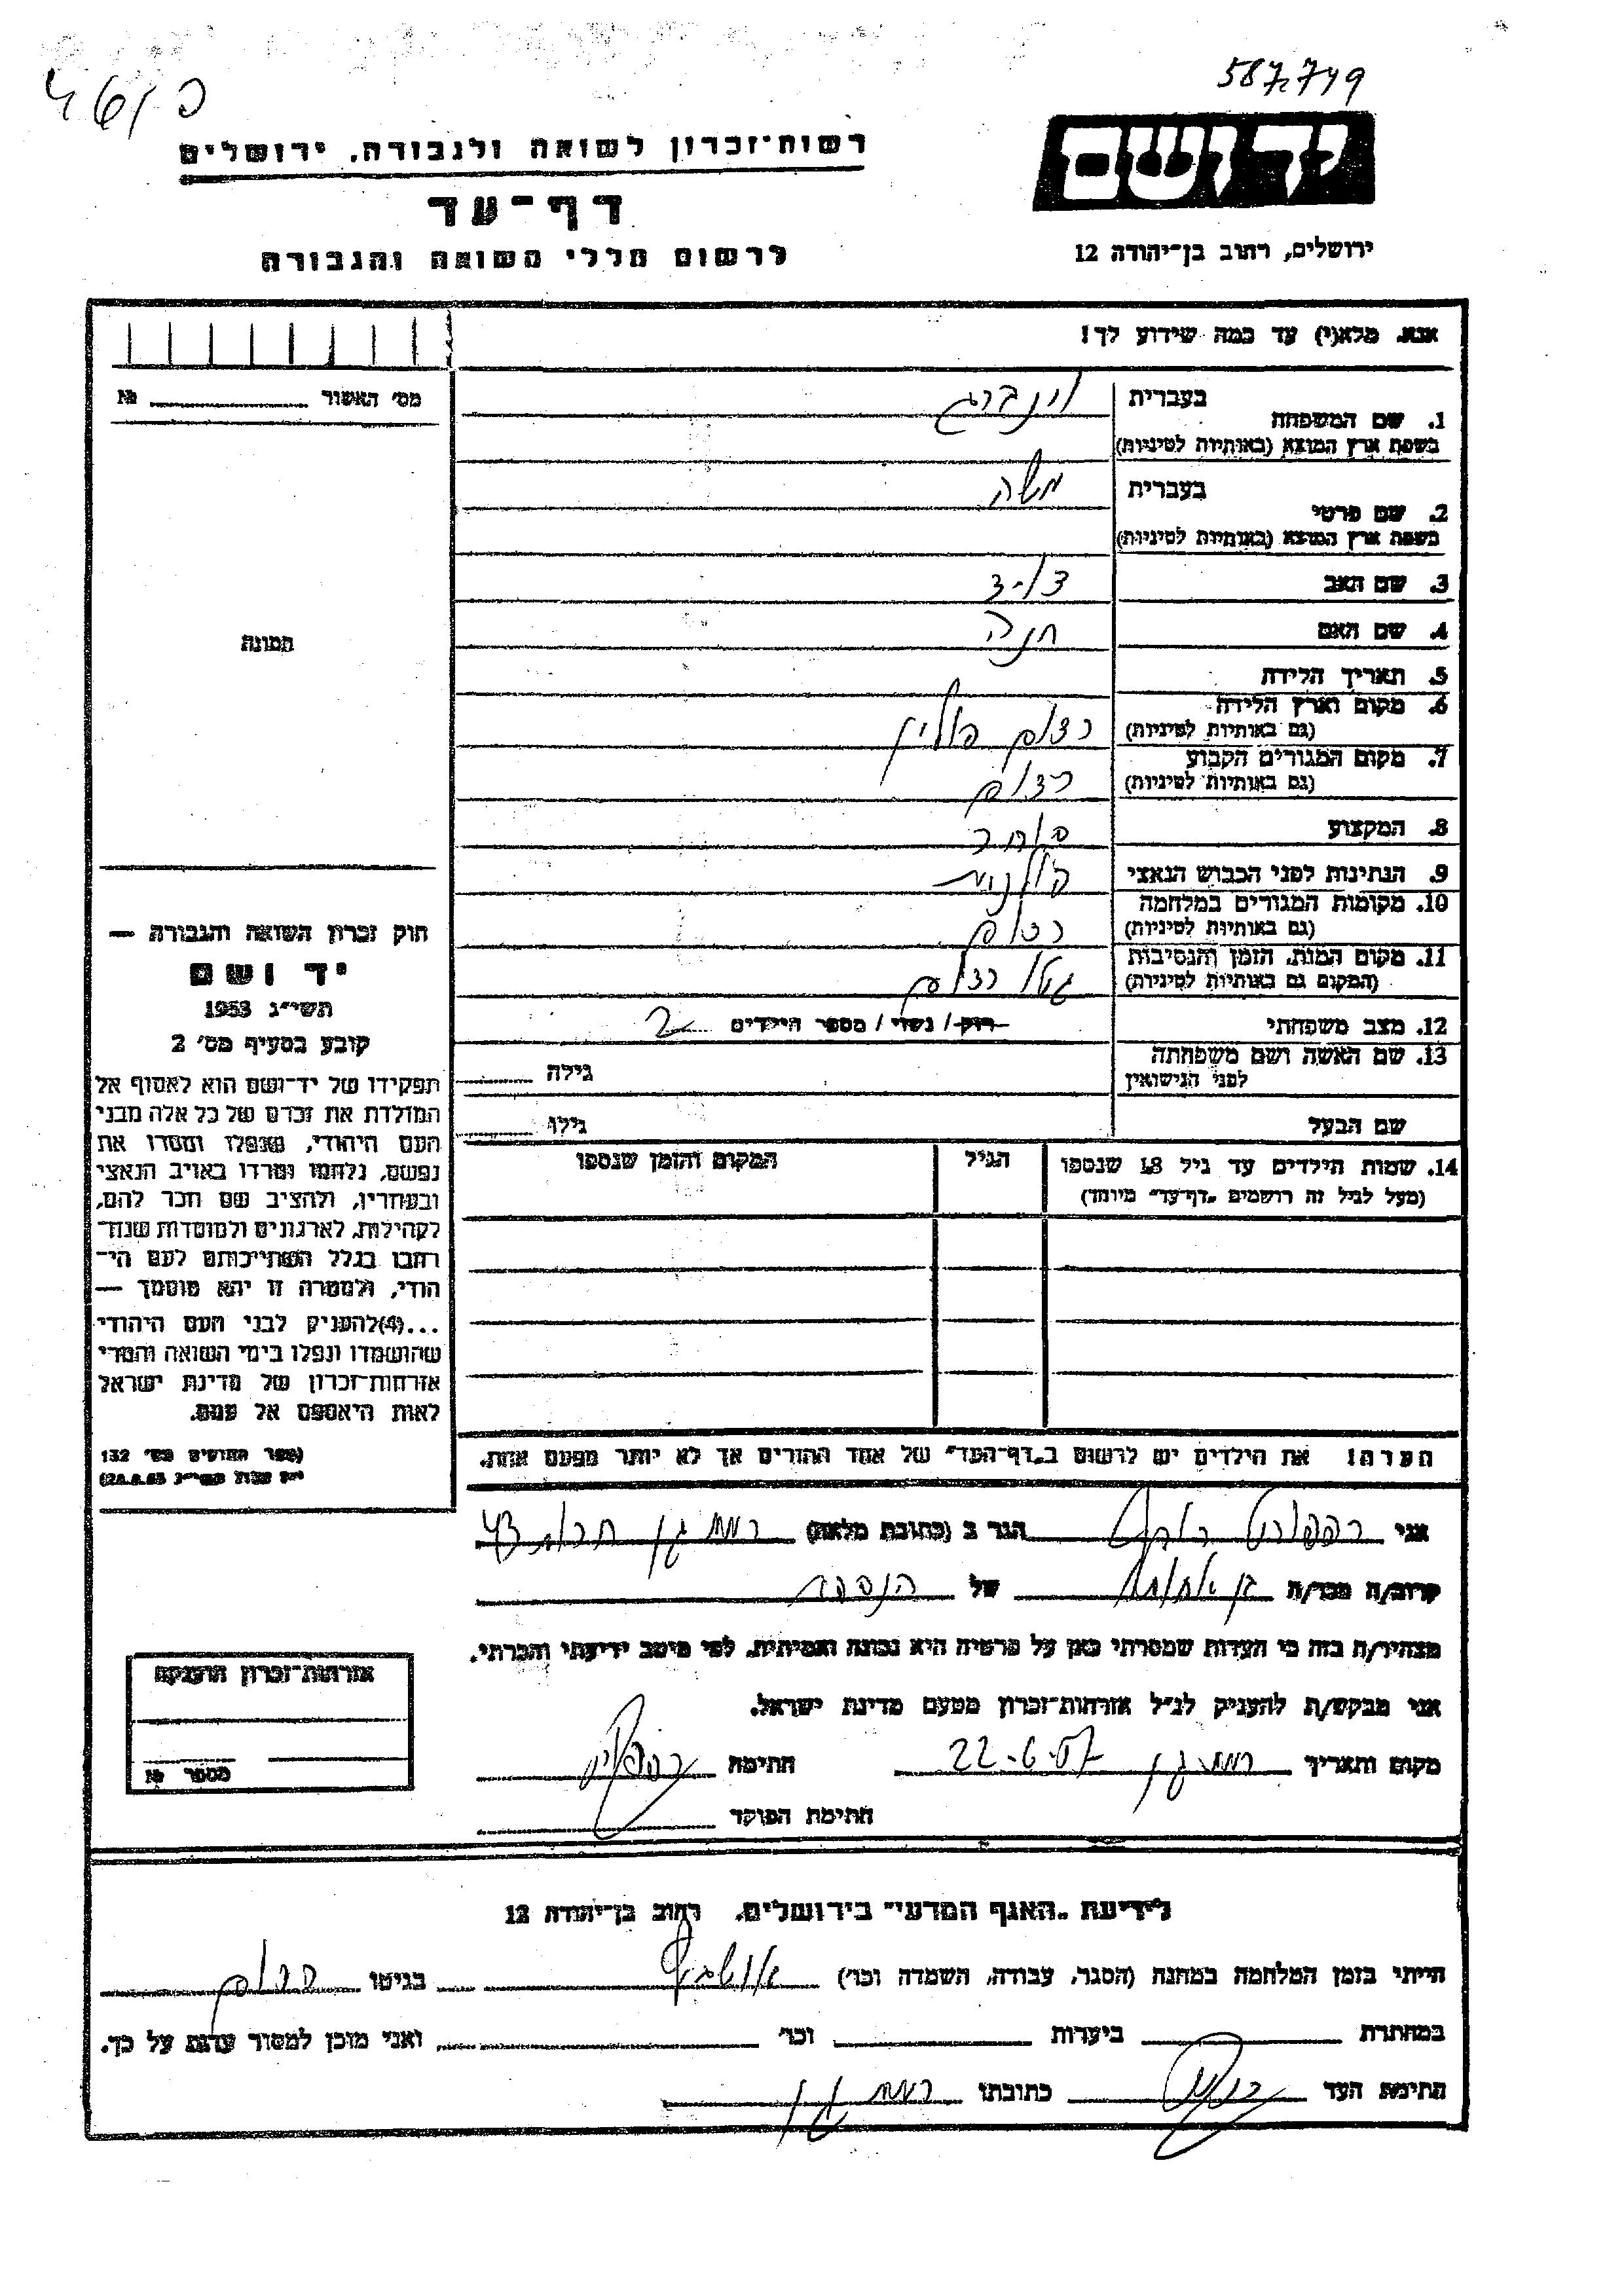 587.749
רשות־זכרון לשואה ולגבורה, ירושלים
יד ושם
דף־עד
ירושלים, רחוב בן־יהודה 12
לרשום חללי השואה והגבורה
אנא, מלא(י) עד כמה שידוע לך!
מס׳ האשור № 
1. שם המשפחה בעברית וינברג
בשפת ארץ המוצא (באותיות לטיניות)
2. שם פרטי בעברית משה
בשפת ארץ המוצא (באותיות לטיניות)
3. שם האב דוד
4. שם האם חנה
תמונה
5. תאריך הלידה
6. מקום וארץ הלידה רדום פולין
(גם באותיות לטיניות)
7. מקום המגורים הקבוע רדום
(גם באותיות לטיניות)
8. המקצוע סוחר
9. הנתינות לפני הכבוש הנאצי פולנית
10. מקומות המגורים במלחמה רדום
(גם באותיות לטיניות)
11. מקום המות, הזמן והנסיבות גטו רדום
(המקום גם באותיות לטיניות)
12. מצב משפחתי רוק / נשוי / מספר הילדים 2
13. שם האשה ושם משפחתה גילה
לפני הנישואין
שם הבעל גילו
14. שמות הילדים עד גיל 18 שנספו הגיל המקום והזמן שנספו
(מעל לגיל זה רושמים „דף־עד״ מיוחד)
חוק זכרון השואה והגבורה —
יד ושם
תשי״ג 1953
קובע בסעיף מס׳ 2
תפקידו של יד־ושם הוא לאסוף אל
המולדת את זכרם של כל אלה מבני
העם היהודי, שנפלו ומסרו את
נפשם, נלחמו ומרדו באויב הנאצי
ובעוזריו, ולהציב שם וזכר להם,
לקהילות, לארגונים ולמוסדות שנח־
רבו בגלל השתייכותם לעם הי־
הודי, ולמטרה זו יהא מוסמך —
...(4)להעניק לבני העם היהודי
שהושמדו ונפלו בימי השואה והמרי
אזרחות־זכרון של מדינת ישראל
לאות היאספם אל עמם.
(ספר החוקים מס׳ 132
הערה! את הילדים יש לרשום ב„דף־העד״ של אחד ההורים אך לא יותר מפעם אחת.
אני רפפורט הגר ב (כתובת מלאה) רמת גן
קרוב/ה מכר/ה של
מצהיר/ה בזה כי העדות שמסרתי כאן על פרטיה היא נכונה ואמיתית, לפי מיטב ידיעתי והכרתי.
אני מבקש/ת להעניק לנ״ל אזרחות־זכרון מטעם מדינת ישראל.
מקום ותאריך רמת גן 22-6-57 חתימה
חתימת הפוקד
אזרחות־זכרון הוענקה
מספר №
לידיעת „האגף המדעי״ בירושלים, רחוב בן־יהודה 12
הייתי בזמן המלחמה במחנה (הסגר, עבודה, השמדה וכו׳) אושביץ בגיטו רדום
במחתרת ביערות וכו׳ ואני מוכן למסור עדות על כך.
חתימת העד כתובתו רמת גן